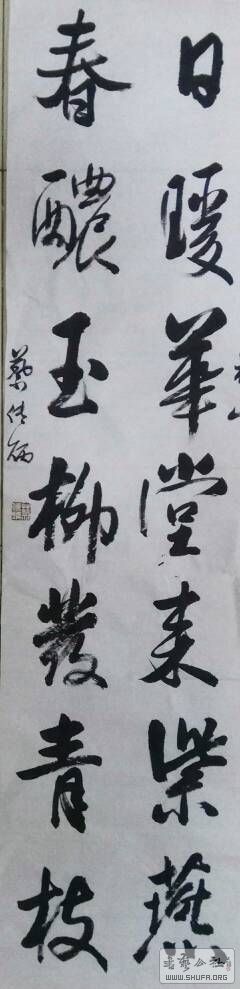 日暖華堂來紫燕
春醲玉柳發青枝
書藝公社
WWW.SHUFA.ORG